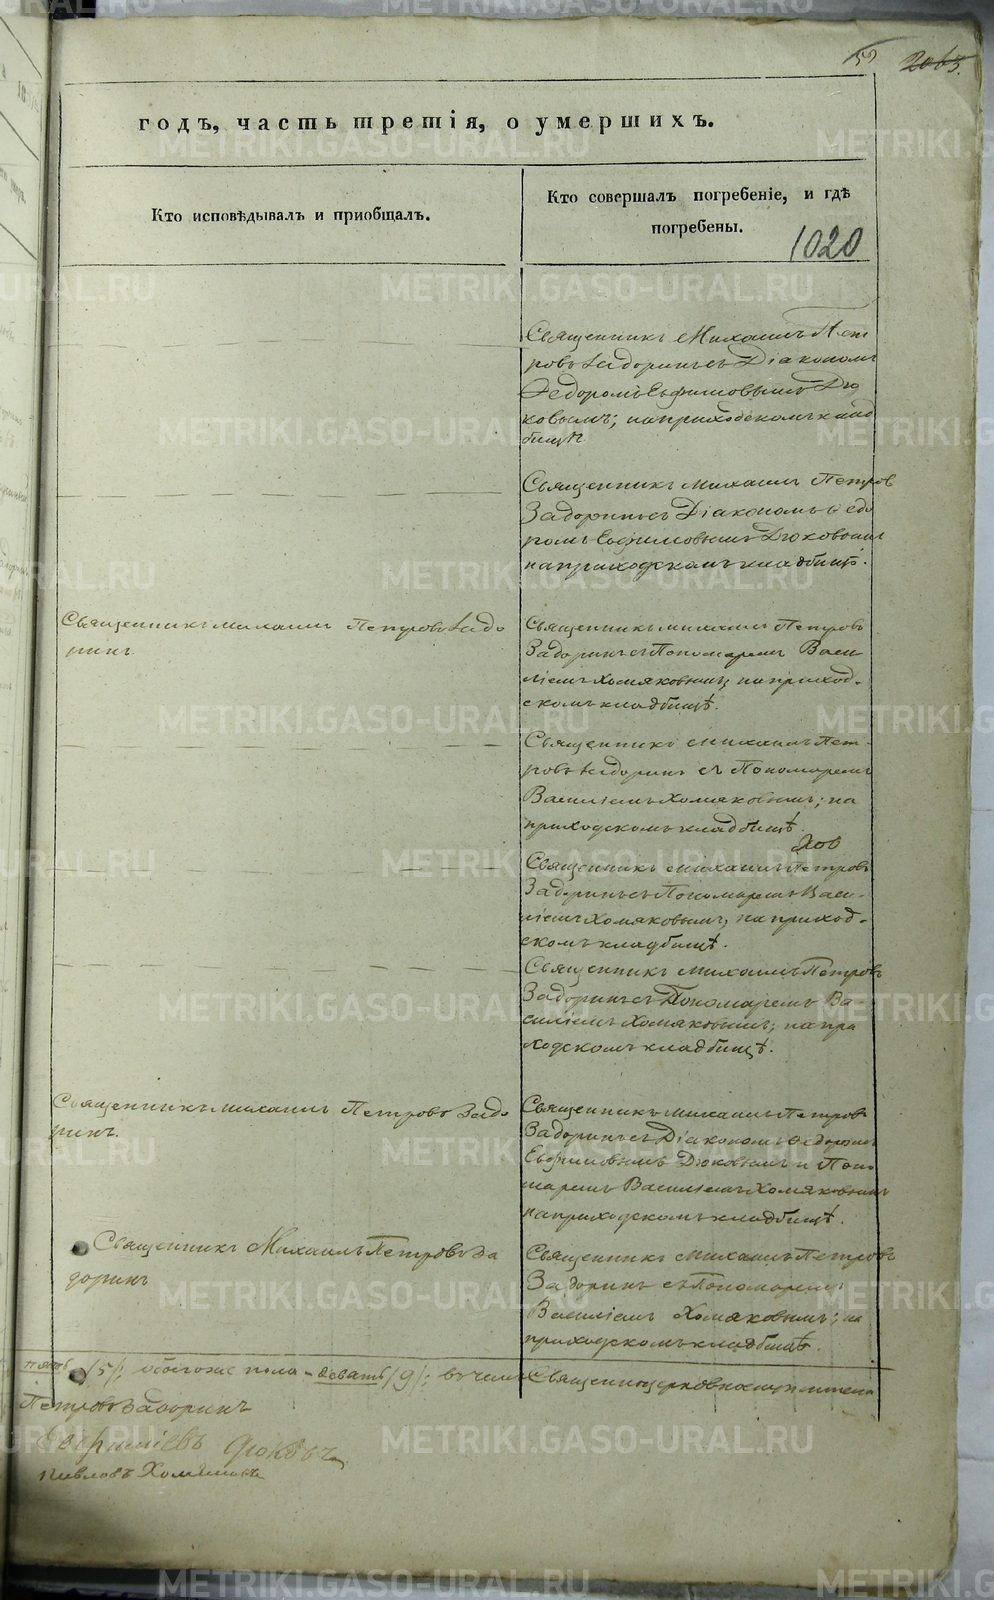 2063.
годъ, часть третія, о умершихъ.
Кто исповѣдывалъ и приобщалъ.
Кто совершалъ погребеніе, и гдѣ
погребены.
1020
Священникъ Михаилъ Пет
ровъ Задоринъ съ Діакономъ
Ѳедоромъ Евфимовымъ Дю
ковымъ; на приходскомъ клад
бищѣ
Священникъ Михаилъ Петров
Задоринъ съ Діакономъ Ѳедо
ромъ Евфимовымъ Дюковымъ
на приходскомъ кладбищѣ.
Священникъ Михаилъ Петровъ Задо
ринъ
Священникъ Михаилъ Петровъ
Задоринъ съ Пономаремъ Васи
ліемъ Хомяковымъ, на приход-
скомъ кладбищѣ.
Священникъ Михаилъ Пет-
ровъ Задоринъ съ Пономаремъ
Василіемъ Хомяковымъ; на
приходскомъ кладбищѣ.
Священникъ Михаилъ Петровъ
Задоринъ съ Пономаремъ Васи-
ліемъ Хомяковымъ, на приход-
скомъ кладбищѣ.
Священникъ Михаилъ Петровъ
Задоринъ съ Пономаремъ Ва
силіемъ Хомяковымъ; на при
ходскомъ кладбищѣ.
Священникъ Михаилъ Петровъ Задо
ринъ.
Священникъ Михаилъ Петровъ
Задоринъ съ Діакономъ Ѳедоромъ
Евфимовымъ Дюковымъ и Поно
маремъ Василіемъ Хомяковымъ
на приходскомъ кладбищѣ.
Священникъ Михаилъ Петровъ За
доринъ
Священникъ Михаилъ Петровъ
Задоринъ съ Пономаремъ
Василіемъ Хомяковымъ; на
приходскомъ кладбищѣ.
пять /5/; обоего же пола - девять /9/; въ чемъ Священноцерковнослужители
Петровъ Задоринъ
Дюковъ
Павловъ Хомяковъ
METRIKI.GASO-URAL.RU